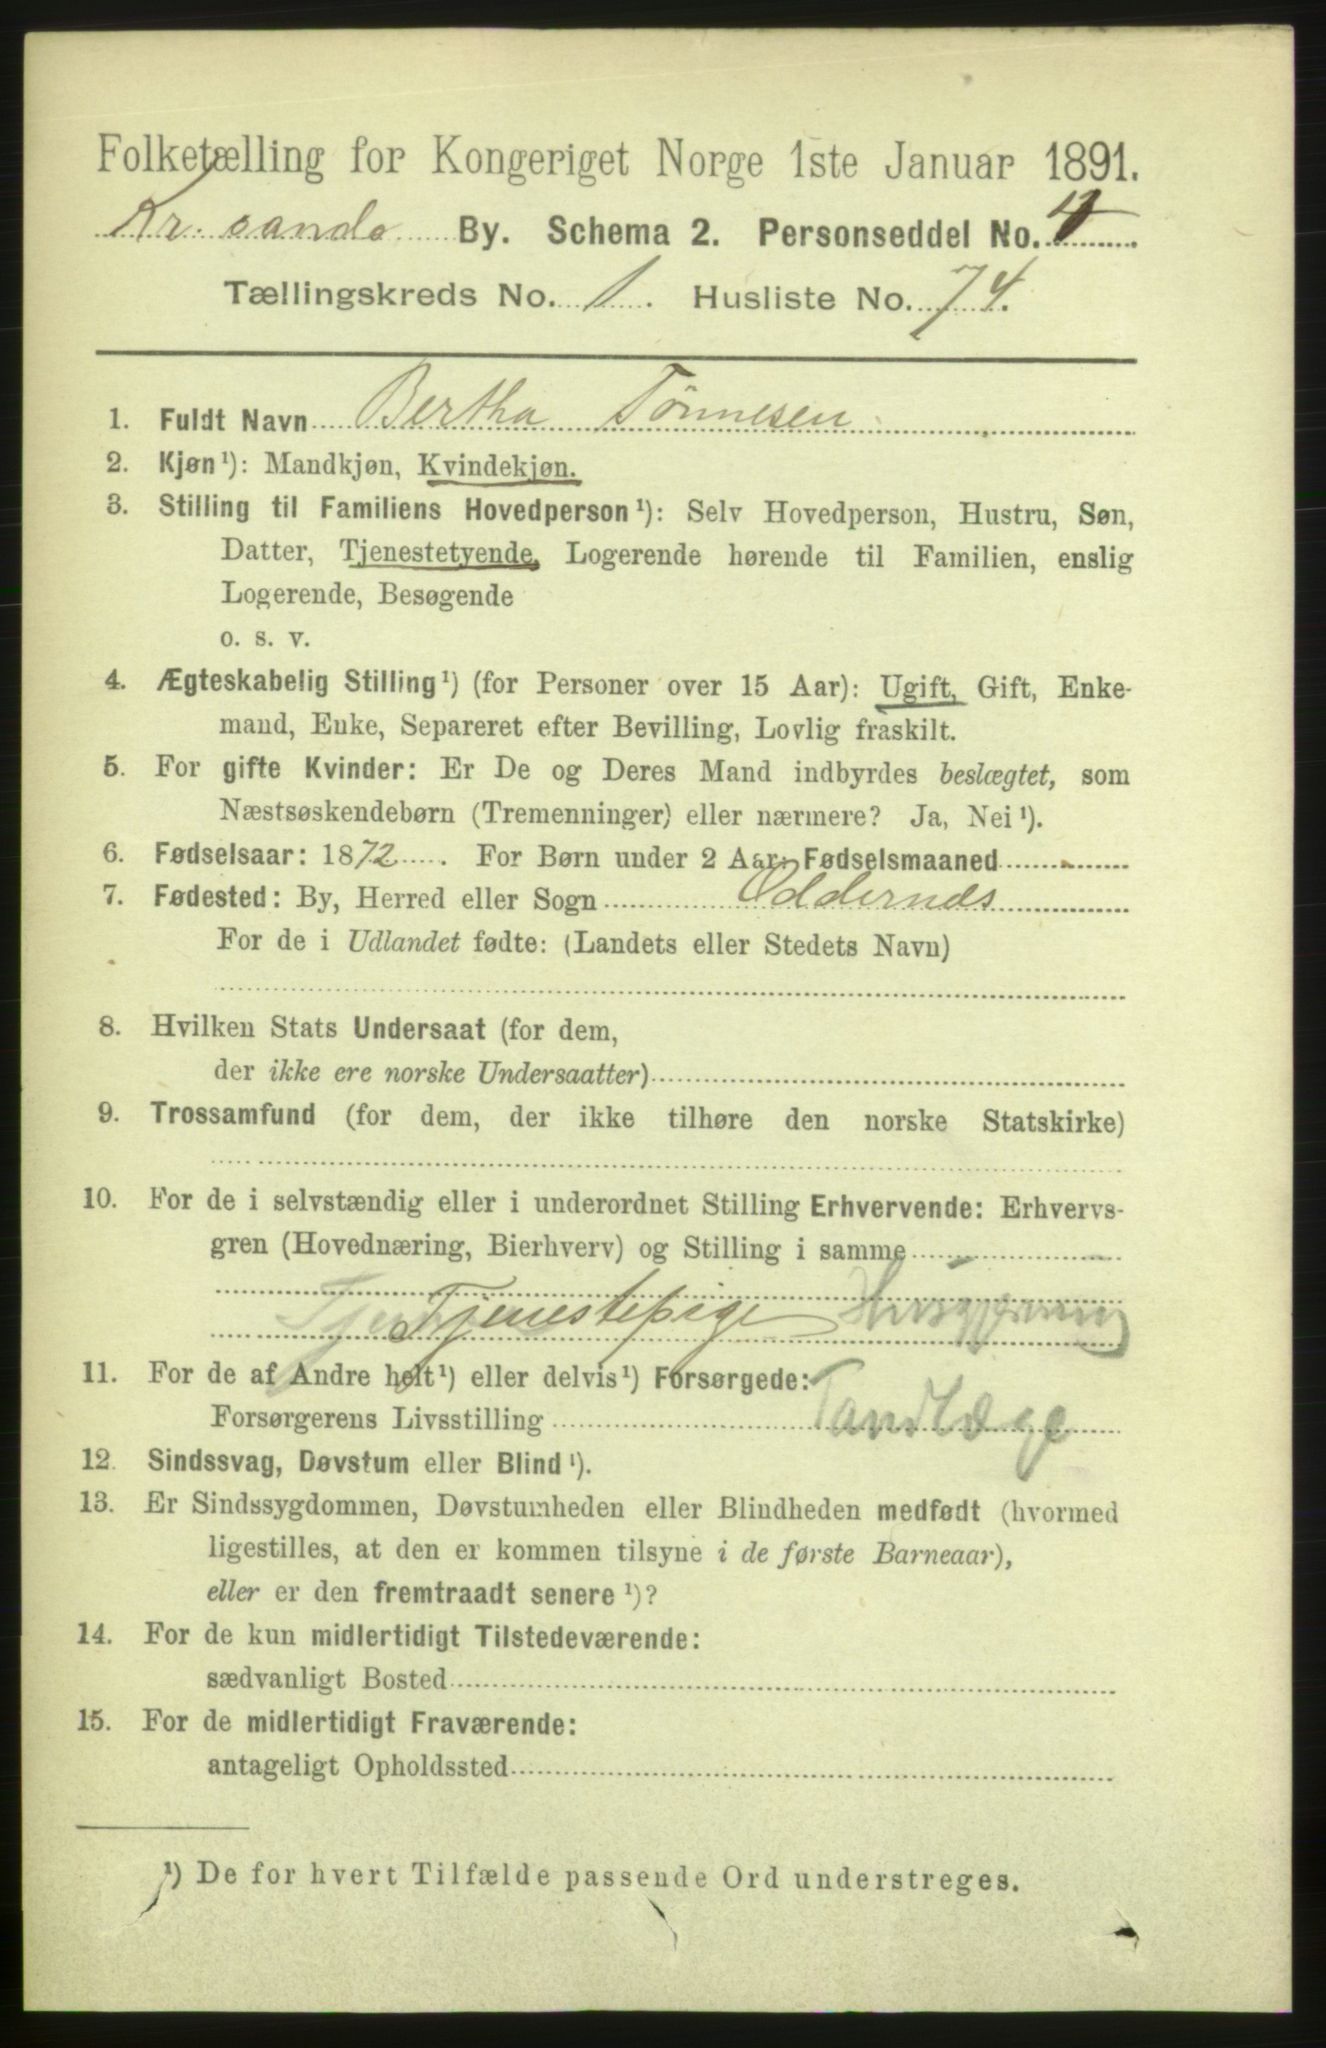 Folketælling for Kongeriget Norge 1ste Januar 1891.
Kr.sands By. Schema 2. Personseddel No. 4
Tællingskreds No. 1. Husliste No. 74.
1. Fuldt Navn Bertha Tönnesen
2. Kjøn¹): Mandkjøn, Kvindekjøn.
3. Stilling til Familiens Hovedperson¹): Selv Hovedperson, Hustru, Søn,
Datter, Tjenestetyende, Logerende hørende til Familien, enslig
Logerende, Besøgende
o. s. v.
4. Ægteskabelig Stilling¹) (for Personer over 15 Aar): Ugift, Gift, Enke-
mand, Enke, Separeret efter Bevilling, Lovlig fraskilt.
5. For gifte Kvinder: Er De og Deres Mand indbyrdes beslægtet, som
Næstsøskendebørn (Tremenninger) eller nærmere? Ja, Nei¹).
6. Fødselsaar: 1872. For Børn under 2 Aar: Fødselsmaaned
7. Fødested: By, Herred eller Sogn Oddernæs
For de i Udlandet fødte: (Landets eller Stedets Navn)
8. Hvilken Stats Undersaat (for dem,
der ikke ere norske Undersaatter)
9. Trossamfund (for dem, der ikke tilhøre den norske Statskirke)
10. For de i selvstændig eller i underordnet Stilling Erhvervende: Erhvervs-
gren (Hovednæring, Bierhverv) og Stilling i samme
Tjenestepige Husgjerning
11. For de af Andre helt¹) eller delvis¹) Forsørgede:
Forsørgerens Livsstilling Tandlæge
12. Sindssvag, Døvstum eller Blind¹).
13. Er Sindssygdommen, Døvstumheden eller Blindheden medfødt (hvormed
ligestilles, at den er kommen tilsyne i de første Barneaar),
eller er den fremtraadt senere¹)?
14. For de kun midlertidigt Tilstedeværende:
sædvanligt Bosted
15. For de midlertidigt Fraværende:
antageligt Opholdssted
¹) De for hvert Tilfælde passende Ord understreges.